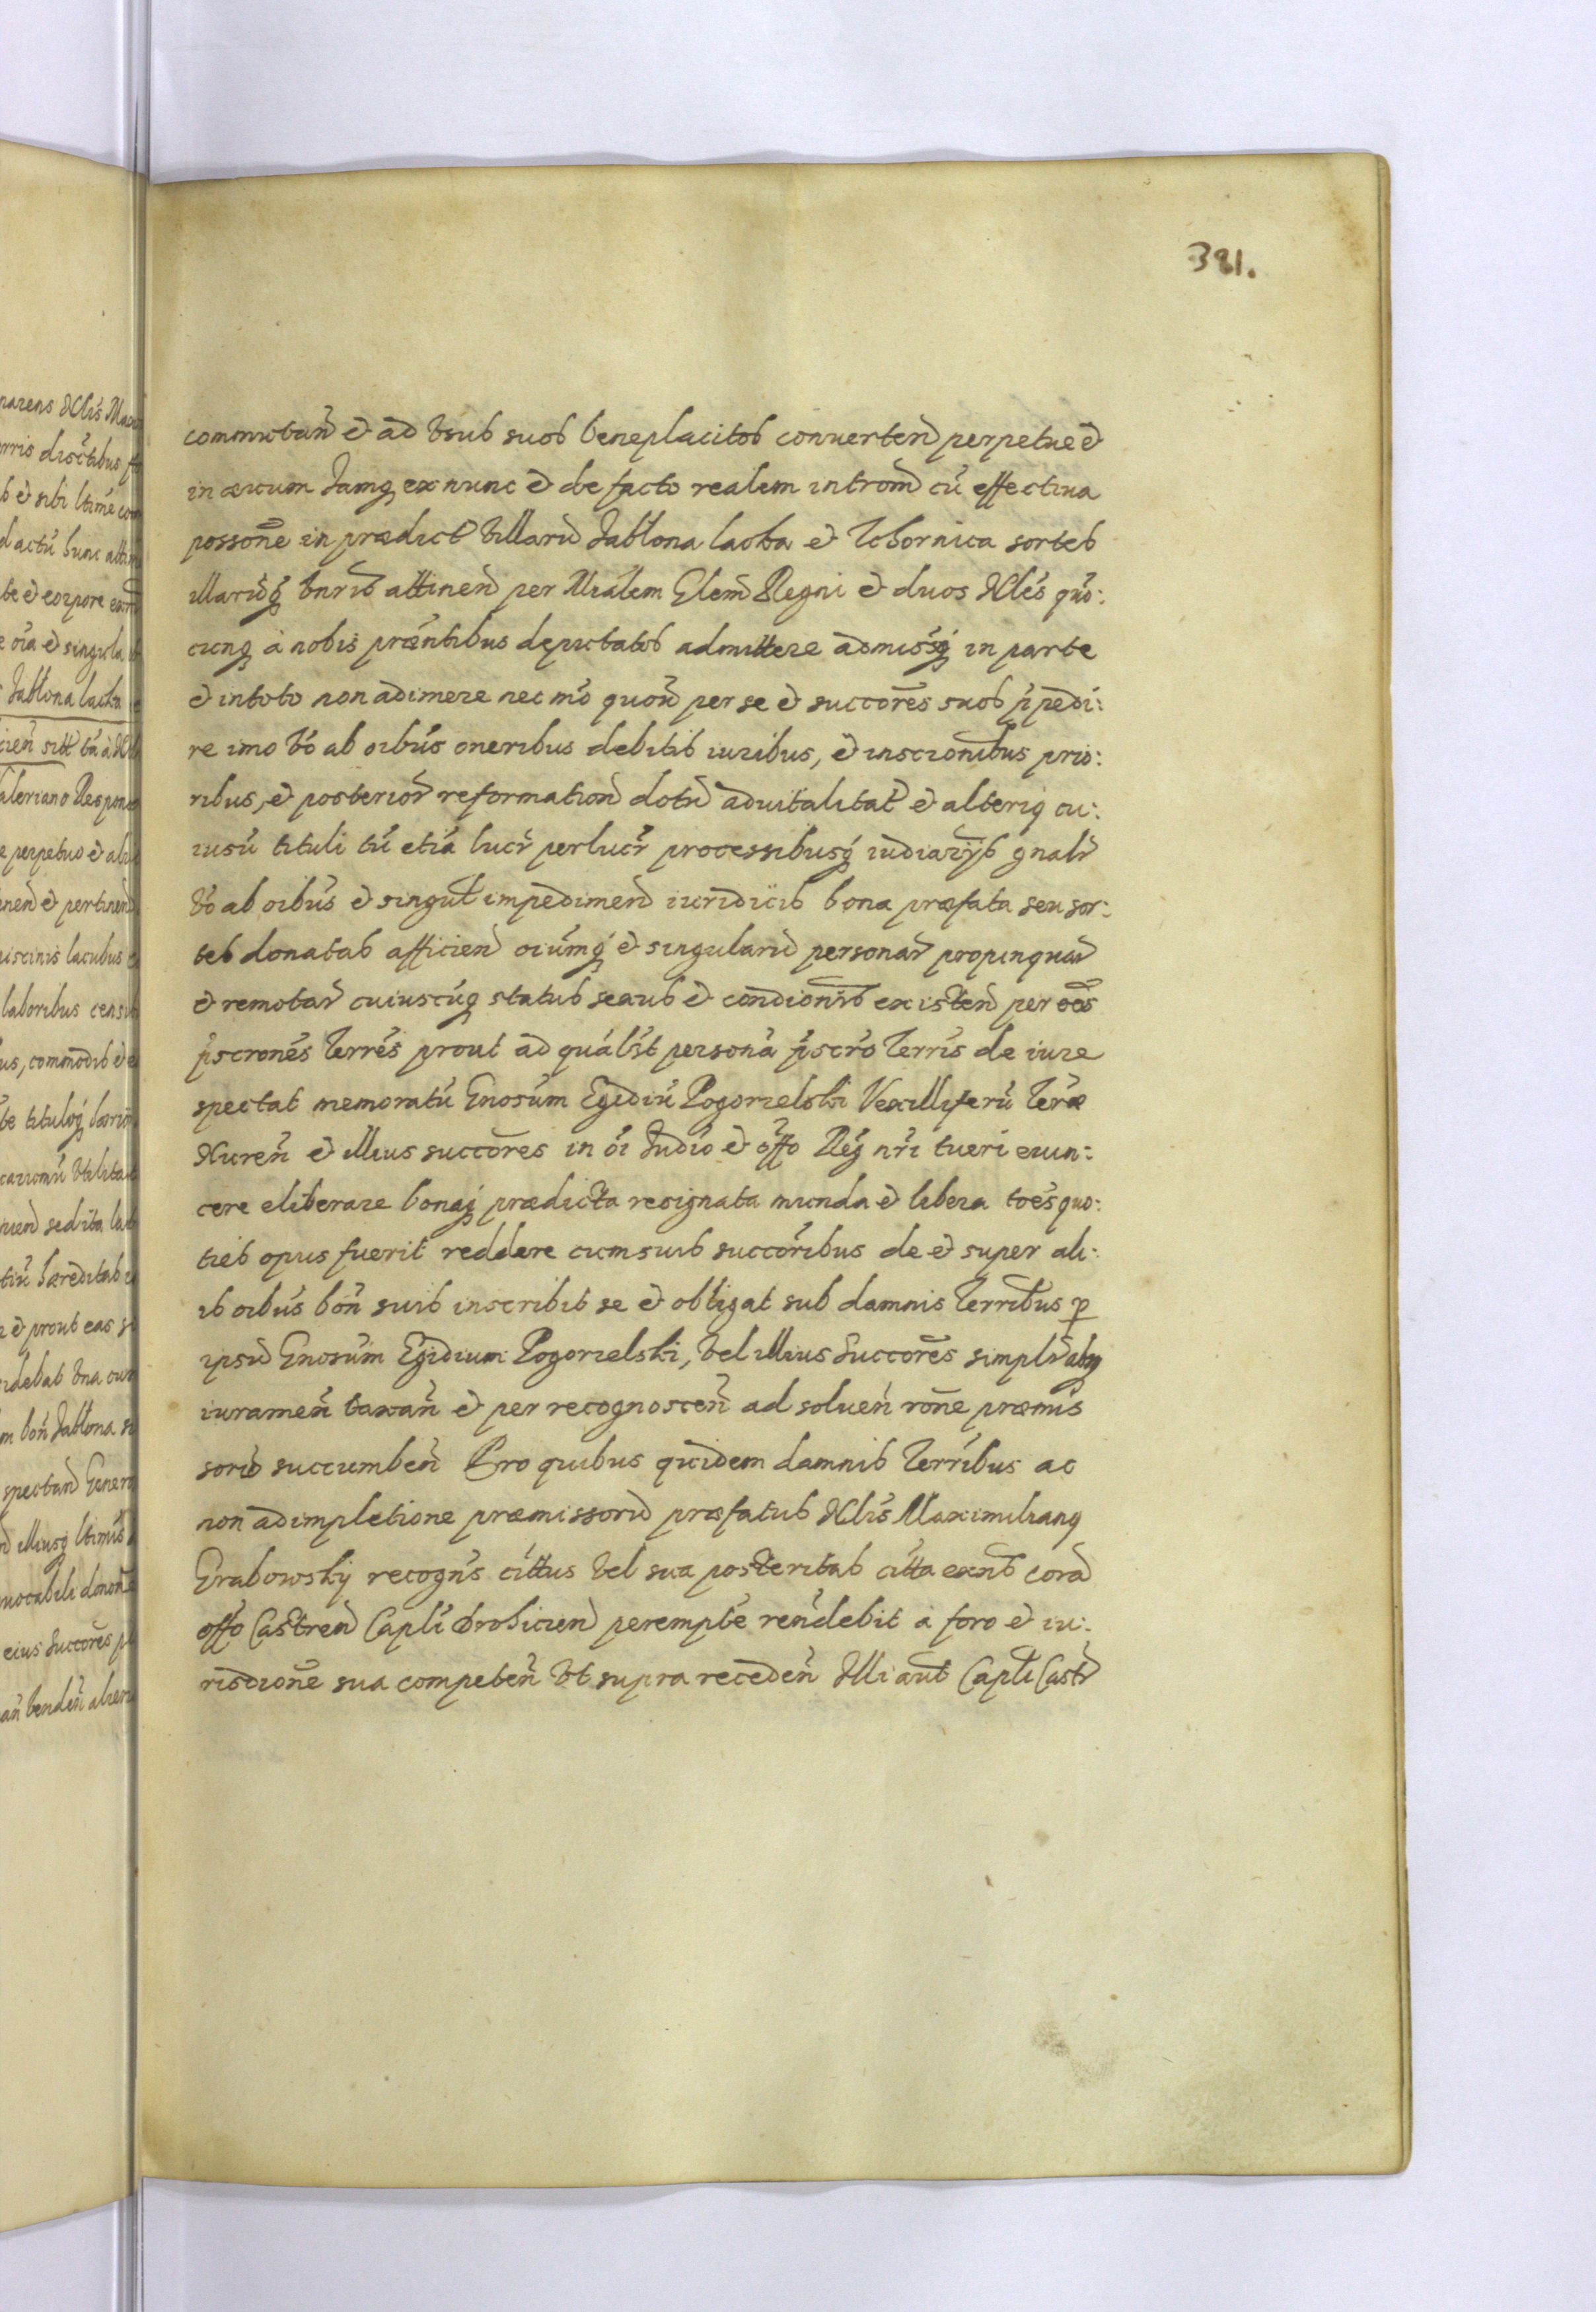 381.
commutan̄ et ad usus suos beneplacitos conuerten̄ perpetue et
in ævum Jamq̨ ex nunc et de facto realem introm̄ cū effectiua
possone in prædict Villarū Jabłona lacka et Tobornica sortes
illarūq̨ bnrū attinen̄ per Mrālem Glem̄ Regni et duos Nles quo:
cunq̨ à nobis præntibus deputatos admittere admissq̨ in parte
et in toto non adimere nec mo quon per se et succores suos ip̄pedi:
re imo vo ab oibus oneribus debitis iuribus, et inscrionibus prio:
ribus, et posterior reformation̄ dotū aduitalitat et alteriq̨ cu:
iusū tituli tū etia lucr perlucr processibusq̨ iudiariys gnalr
vo ab oibus et singul impedimen̄ iuridicis bona præfata seu sor:
tes donatas afficien̄ oiumq̨ et singularū personar propinquar
et remotar cuiuscūq̨ status sexus et condionis existen̄ per oes
p̄scrones Terres prout ad qualst persona p̄scro Terris de iure
spectat memoratū Gnosum Egidiū Pogorzelski Vexilliferū Terræ
Nuren̄ et illius succores in oi Judio et offo Reg nri tueri euin:
cere eliberare bonaq̨ prædicta resignata munda et libera toes quo:
ties opus fuerit reddere cum suis succoribus de et super ali:
is oibus bon̄ suis inscribit se et obligat sub damnis Terribus p
ipsū Gnosum Egidium Pogorzelski, vel illius Succores simplr absq̨
iuramen̄ taxan̄ et per recognoscen̄ ad soluen̄ rone præmis
sorū succumben̄ Pro quibus quidem damnis Terribus ac
non adimpletione præmissorū præfatus Nlis Maximilianq̨
Grabowsky recogns cittus vel sua posteritas citta exnts corā
offo Castren̄ Capli Drohicien̄ perempte rendebit à foro et iu:
risdione sua competen̄ vt supra receden̄ Illi aut Capli Castr